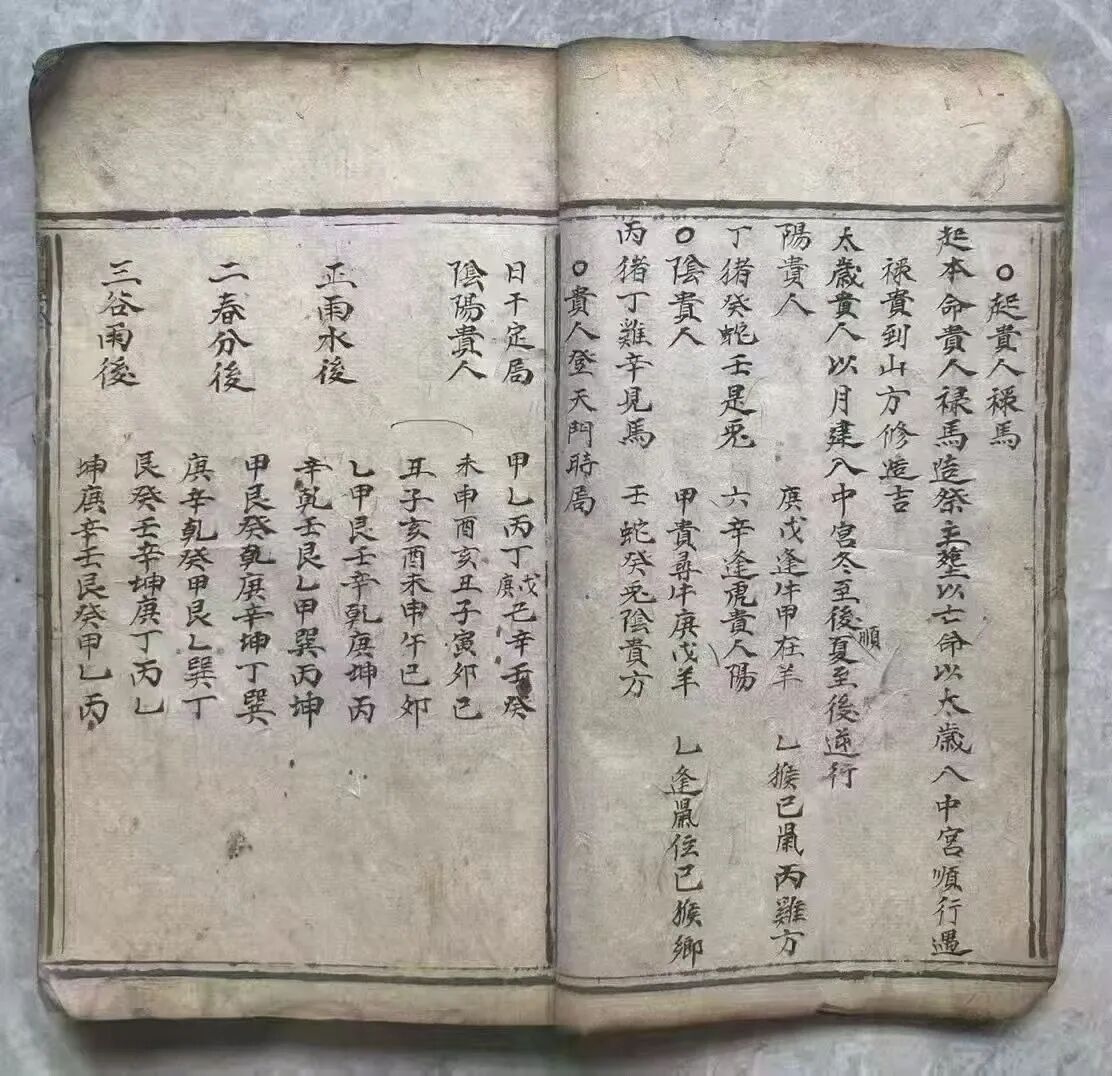 ○起貴人祿馬
起本命貴人祿馬造祭主塟以亡命以太歲入中宮順行遇
祿貴到山方修造吉
太歲貴人以月建入中宮冬至後順夏至後逆行
陽貴人 庚戊逢牛甲在羊 乙猴己鼠丙雞方
丁猪癸蛇壬是兎 六辛逢虎貴人陽
○陰貴人 甲貴尋牛庚戊羊 乙逢鼠位己猴鄉
丙猪丁雞辛見馬 壬蛇癸兎陰貴方
○貴人登天門時局
日干定局 甲乙丙丁戊庚己辛壬癸
陰陽貴人 未申酉亥丑子寅卯巳
丑子亥酉未申午巳卯
正雨水後 乙甲艮壬辛乾庚坤丙
辛乾壬艮乙甲巽丙坤
二春分後 甲艮癸乾庚辛坤丁巽
庚辛乾癸甲艮乙巽丁
三谷雨後 艮癸壬辛坤庚丁丙乙
坤庚辛壬艮癸甲乙丙